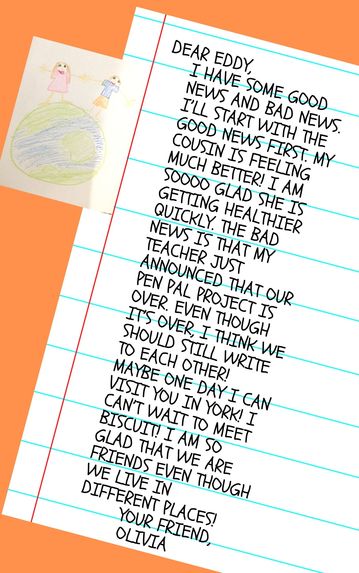 DEAR EDDY,
I HAVE SOME GOOD
NEWS AND BAD NEWS.
I'LL START WITH THE
GOOD NEWS FIRST. MY
COUSIN IS FEELING
MUCH BETTER! I AM
SOOOO GLAD SHE IS
GETTING HEALTHIER
QUICKLY. THE BAD
NEWS IS THAT MY
TEACHER JUST
ANNOUNCED THAT OUR
PEN PAL PROJECT IS
OVER. EVEN THOUGH
IT'S OVER, I THINK WE
SHOULD STILL WRITE
TO EACH OTHER!
MAYBE ONE DAY I CAN
VISIT YOU IN YORK! I
CAN'T WAIT TO MEET
BISCUIT! I AM SO
GLAD THAT WE ARE
FRIENDS EVEN THOUGH
WE LIVE IN
DIFFERENT PLACES!
YOUR FRIEND,
OLIVIA